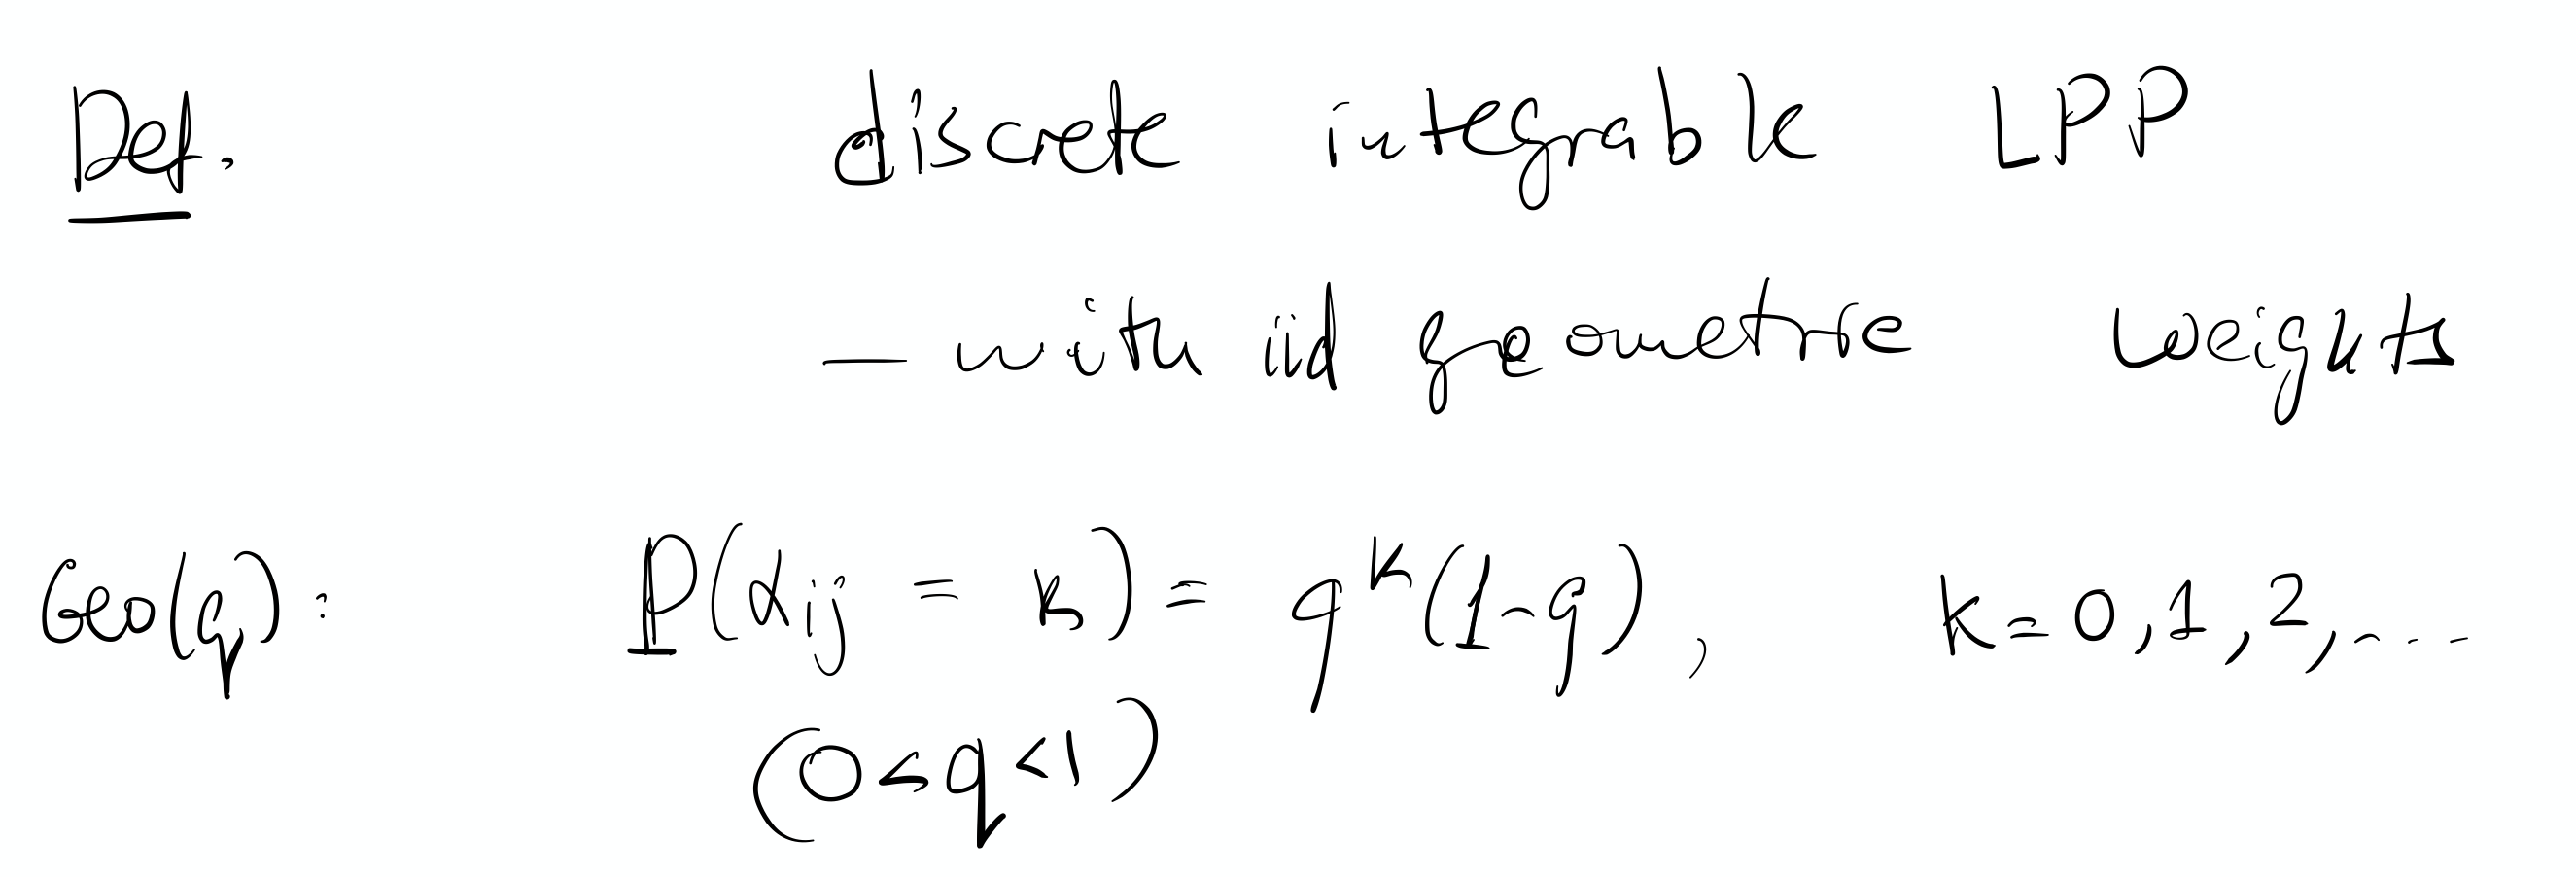 Def. discrete integrable LPP
— with iid geometric weights
Geo(q): P(α_{ij} = k) = q^k (1-q), k=0,1,2,...
(0<q<1)